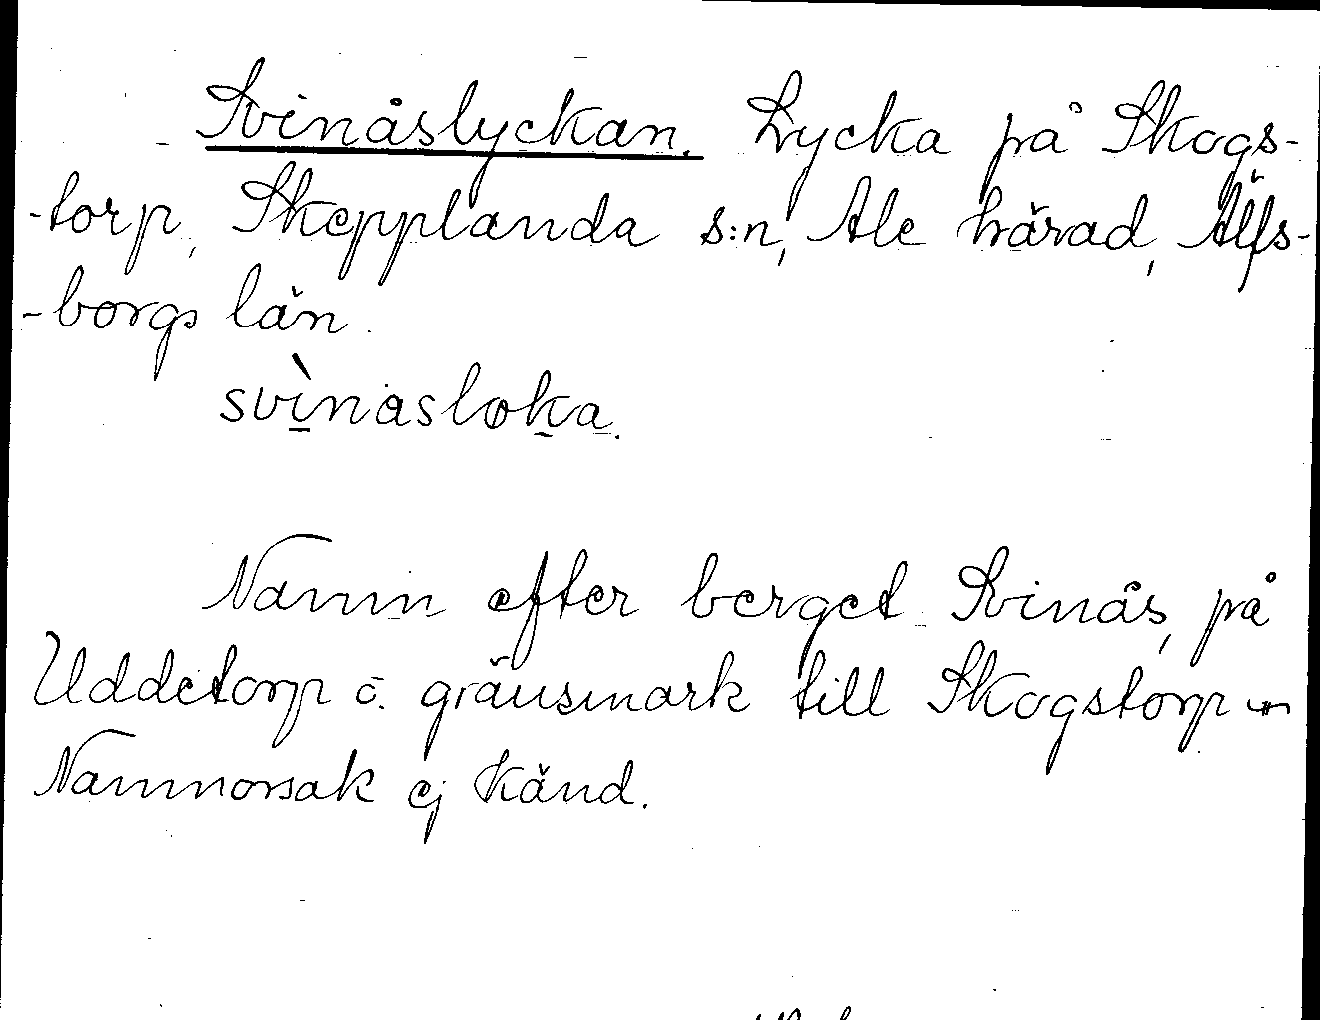 Svinåslyckan. Lycka på Skogs-
-torp, Skepplanda s:n, Ale härad, Älfs-
-borgs län.
svìnasløka.
Namn efter berget Svinås, på
Uddetorp o. gränsmark till Skogstorp
Namnorsak ej känd.